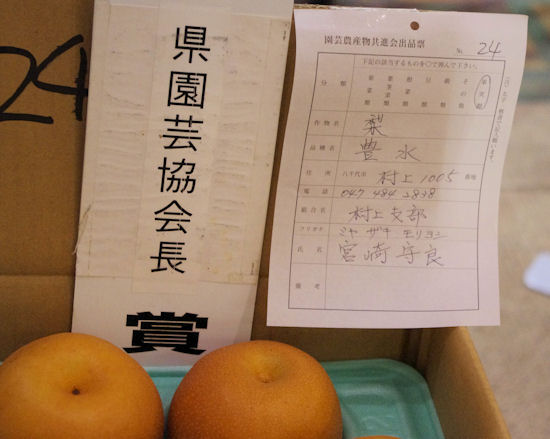 24
県園芸協会長
賞
園芸農産物共進会出品票
№ 24
下記の該当するものを〇で囲んで下さい。
分類
果実類
その他
作物名 梨
品種名 豊水
住所 八千代市 村上1005 番地
電話 047 484 2838
組合名 村上支部
フリガナ ミヤザキ モリヨシ
氏名 宮崎守良
備考